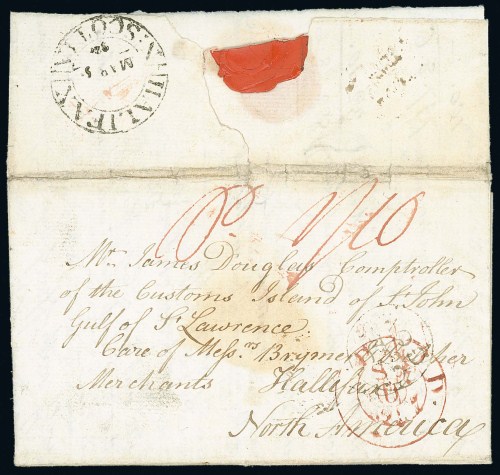 HALIFAX N. SCOTIA
MAR 5
Pd 1/10
Mr. James Douglas Comptroller
of the Customs Island of St. John
Gulf of St. Lawrence
Care of Messrs. Brymer & Belcher
Merchants Hallifax
North America